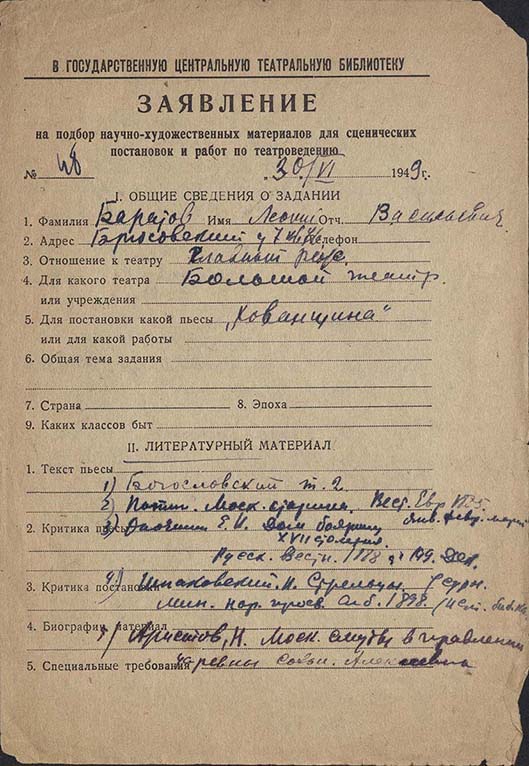 В ГОСУДАРСТВЕННУЮ ЦЕНТРАЛЬНУЮ ТЕАТРАЛЬНУЮ БИБЛИОТЕКУ
ЗАЯВЛЕНИЕ
на подбор научно-художественных материалов для сценических
постановок и работ по театроведению
№ 48 30/VI 1949г.
I. ОБЩИЕ СВЕДЕНИЯ О ЗАДАНИИ
1. Фамилия Баратов Имя Леонид Отч. Васильевич
2. Адрес Брюсовский 7 Телефон
3. Отношение к театру Главный реж.
4. Для какого театра Большой театр.
или учреждения
5. Для постановки какой пьесы „Хованщина"
или для какой работы
6. Общая тема задания
7. Страна 8. Эпоха
9. Каких классов быт
II. ЛИТЕРАТУРНЫЙ МАТЕРИАЛ
1. Текст пьесы
1) Богословский т. 2
2) Моск. старина. Вест. Евр.
янв. февр. март
2. Критика пьесы 3) Е. И. Дом боярина
XVII столетия.
Русск. Вестн. Дек.
3. Критика постановки 4) Шпаковский. Н. Стрельцы.
Мин. нар. просв. 1898.
4. Биографич. материал Аристов, Н. Моск. смуты в правлении
5. Специальные требования царевны Софьи Алексеевны